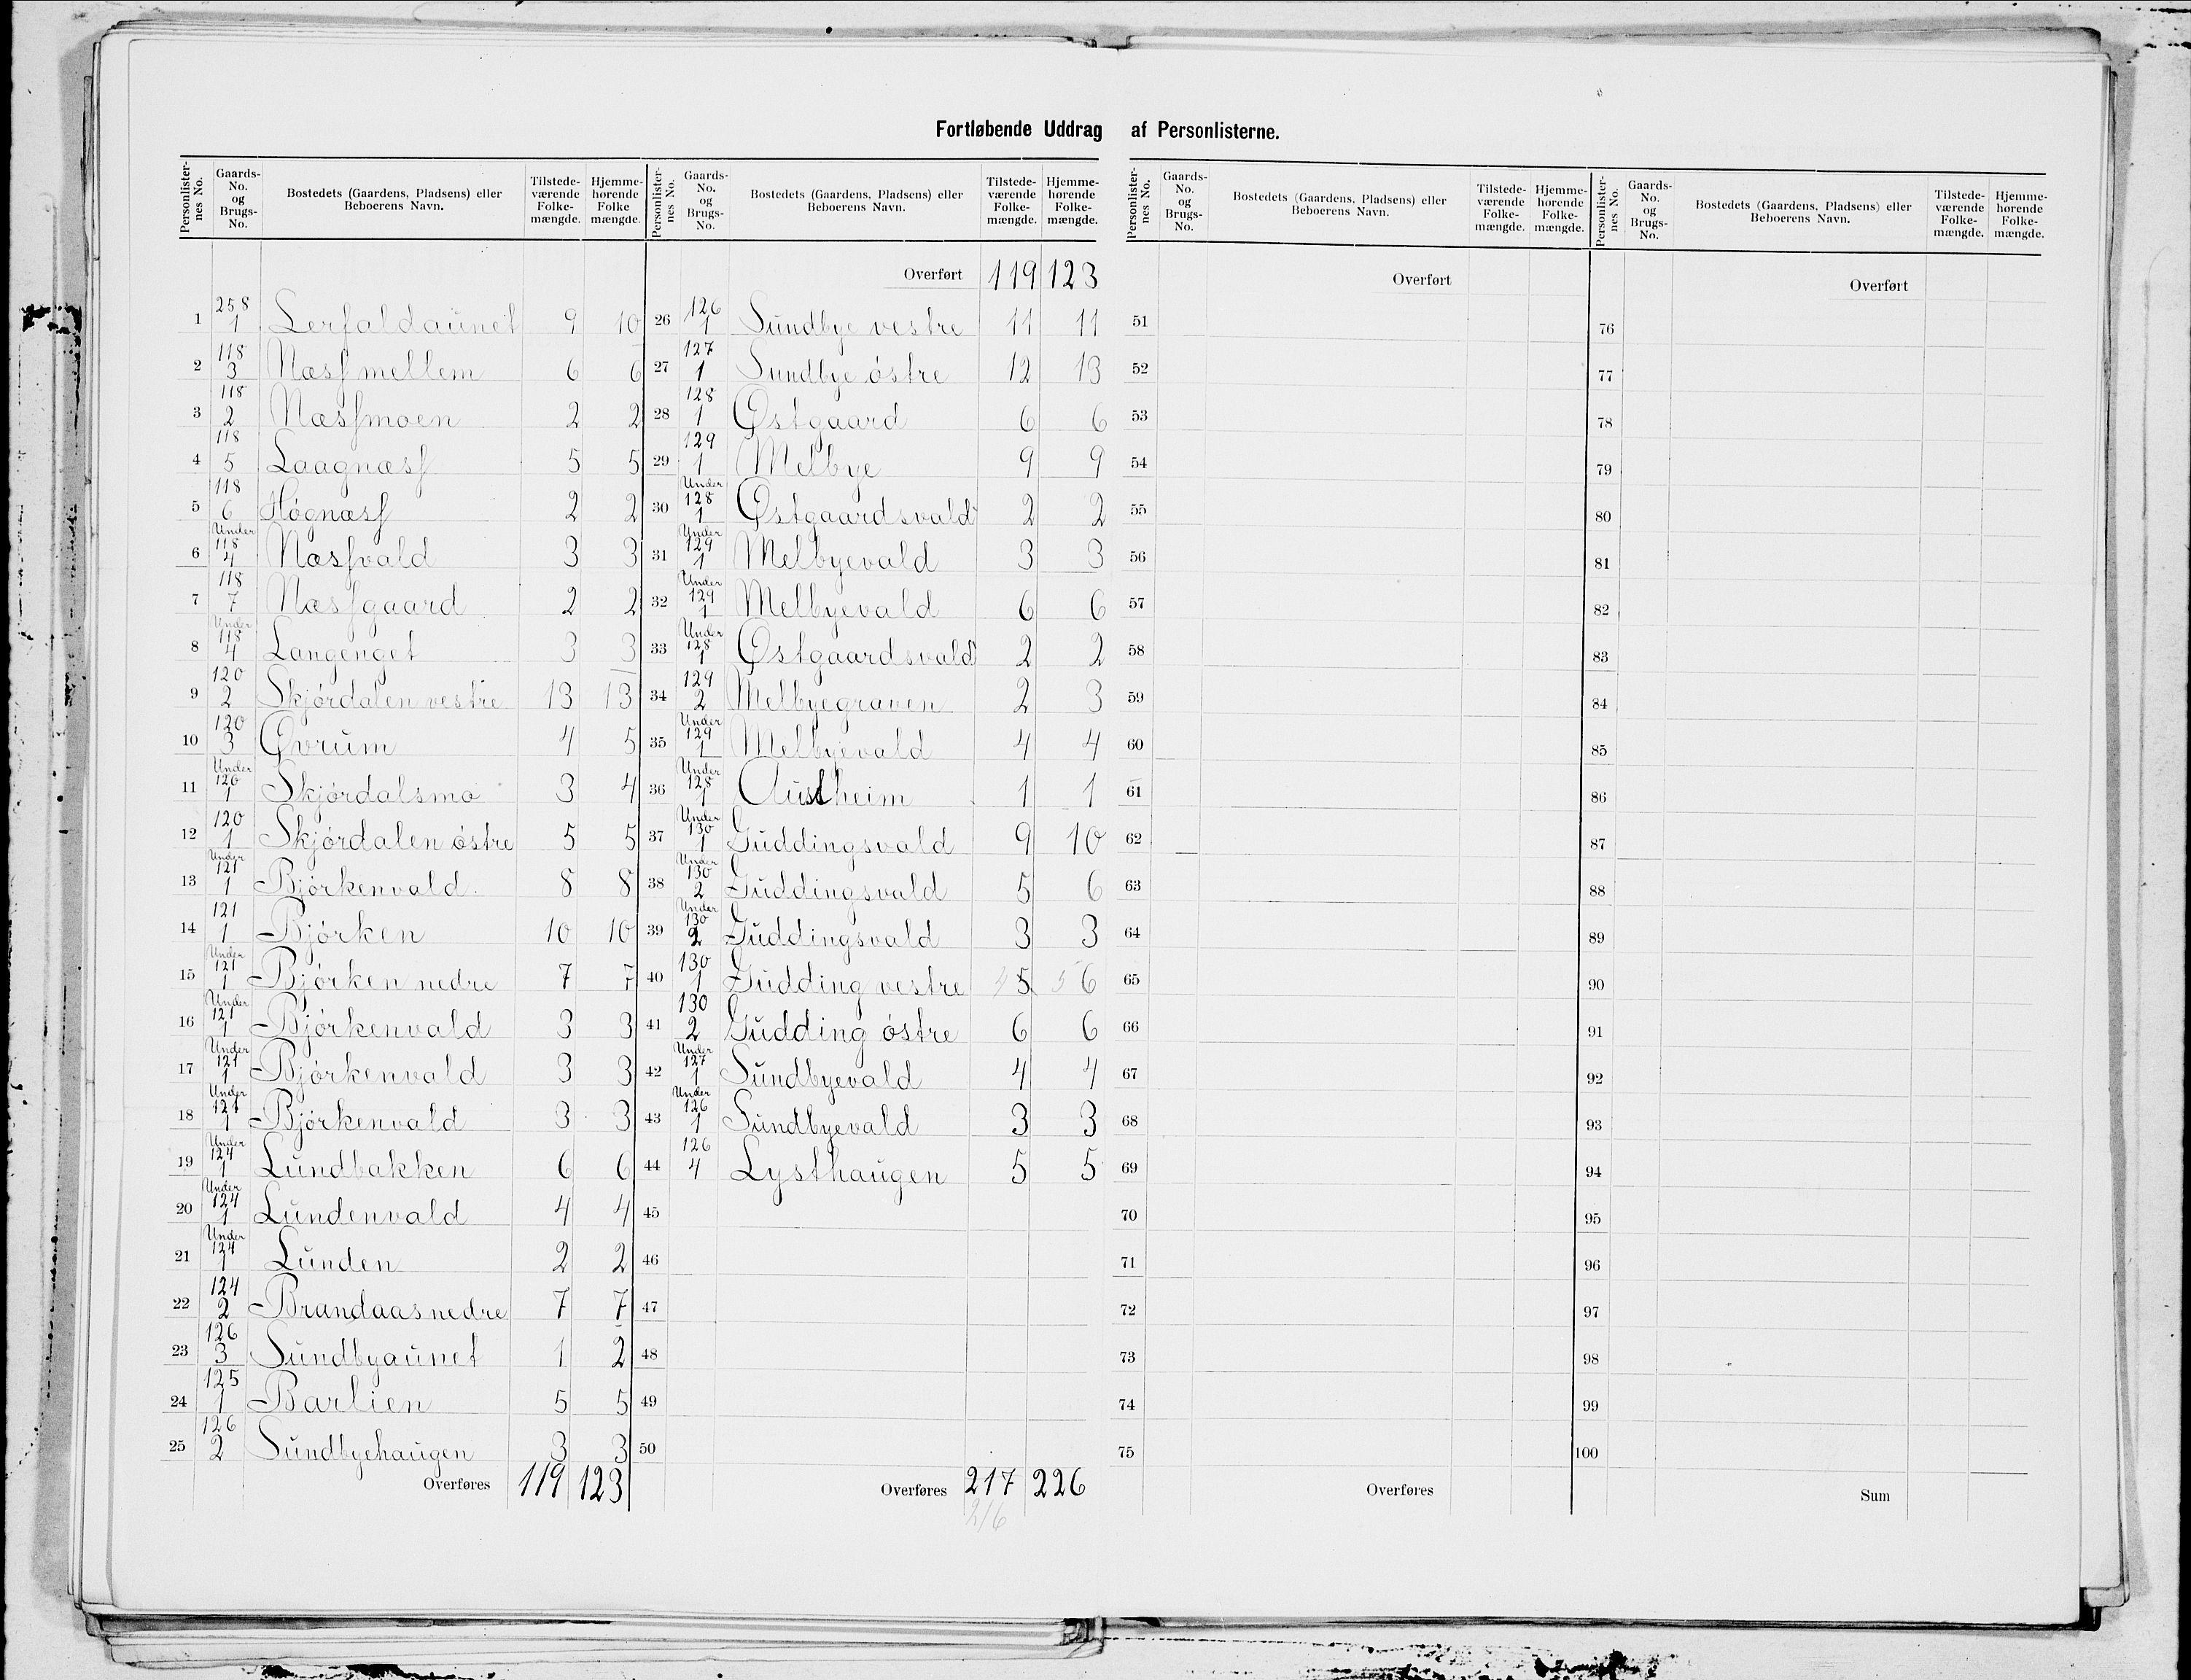 Fortløbende Uddrag af Personlisterne.
Personlister-nes No. Gaards-No. og Brugs-No. Bostedets (Gaardens, Pladsens) eller Beboerens Navn. Tilstede-værende Folke-mængde. Hjemme-hørende Folke mængde.
1 258 1 Lerfaldaunet 9 10
2 118 3 Næss mellem 6 6
3 118 2 Næssmoen 2 2
4 118 5 Laagnæss 5 5
5 118 6 Høgnæss 2 2
6 Under 118 4 Næssvald 3 3
7 118 7 Næssgaard 2 2
8 Under 118 4 Langenget 3 3
9 120 2 Skjørdalen vestre 13 13
10 120 3 Øvrum 4 5
11 Under 120 1 Skjørdalsmo 3 4
12 120 1 Skjørdalen østre 5 5
13 Under 121 1 Bjørkenvald 8 8
14 121 1 Bjørken 10 10
15 Under 121 1 Bjørken nedre 7 7
16 Under 121 1 Bjørkenvald 3 3
17 Under 121 1 Bjørkenvald 3 3
18 Under 121 1 Bjørkenvald 3 3
19 Under 124 1 Lundbakken 6 6
20 Under 124 1 Lundenvald 4 4
21 Under 124 1 Lunden 2 2
22 124 2 Brandaas nedre 7 7
23 126 3 Sundbyaunet 1 2
24 125 1 Barlien 5 5
25 126 2 Sundbyehaugen 3 3
Overføres 119 123
Personlister-nes No. Gaards-No. og Brugs-No. Bostedets (Gaardens, Pladsens) eller Beboerens Navn. Tilstede-værende Folke-mængde. Hjemme-hørende Folke-mængde.
Overført 119 123
26 126 1 Sundbye vestre 11 11
27 127 1 Sundbye østre 12 13
28 128 1 Østgaard 6 6
29 129 1 Melbye 9 9
30 Under 128 1 Østgaardsvald 2 2
31 Under 129 1 Melbyevald 3 3
32 Under 129 1 Melbyevald 6 6
33 Under 128 1 Østgaardsvald 2 2
34 129 2 Melbyegraven 2 3
35 Under 129 1 Melbyevald 4 4
36 Under 128 1 Austheim 1 1
37 Under 130 1 Guddingsvald 9 10
38 Under 130 2 Guddingsvald 5 6
39 Under 130 2 Guddingsvald 3 3
40 130 1 Gudding vestre 5 5 6
41 130 2 Gudding østre 6 6
42 Under 127 1 Sundbyevald 4 4
43 Under 126 1 Sundbyevald 3 3
44 126 4 Lysthaugen 5 5
45
46
47
48
49
50
Overføres 217 226
216
Personlister-nes No. Gaards-No. og Brugs-No. Bostedets (Gaardens, Pladsens) eller Beboerens Navn. Tilstede-værende Folke-mængde. Hjemme-hørende Folke-mængde.
Overført
51
52
53
54
55
56
57
58
59
60
61
62
63
64
65
66
67
68
69
70
71
72
73
74
75
Overføres
Personlister-nes No. Gaards-No. og Brugs-No. Bostedets (Gaardens, Pladsens) eller Beboerens Navn. Tilstede-værende Folke-mængde. Hjemme-hørende Folke-mængde.
Overført
76
77
78
79
80
81
82
83
84
85
86
87
88
89
90
91
92
93
94
95
96
97
98
99
100
Sum